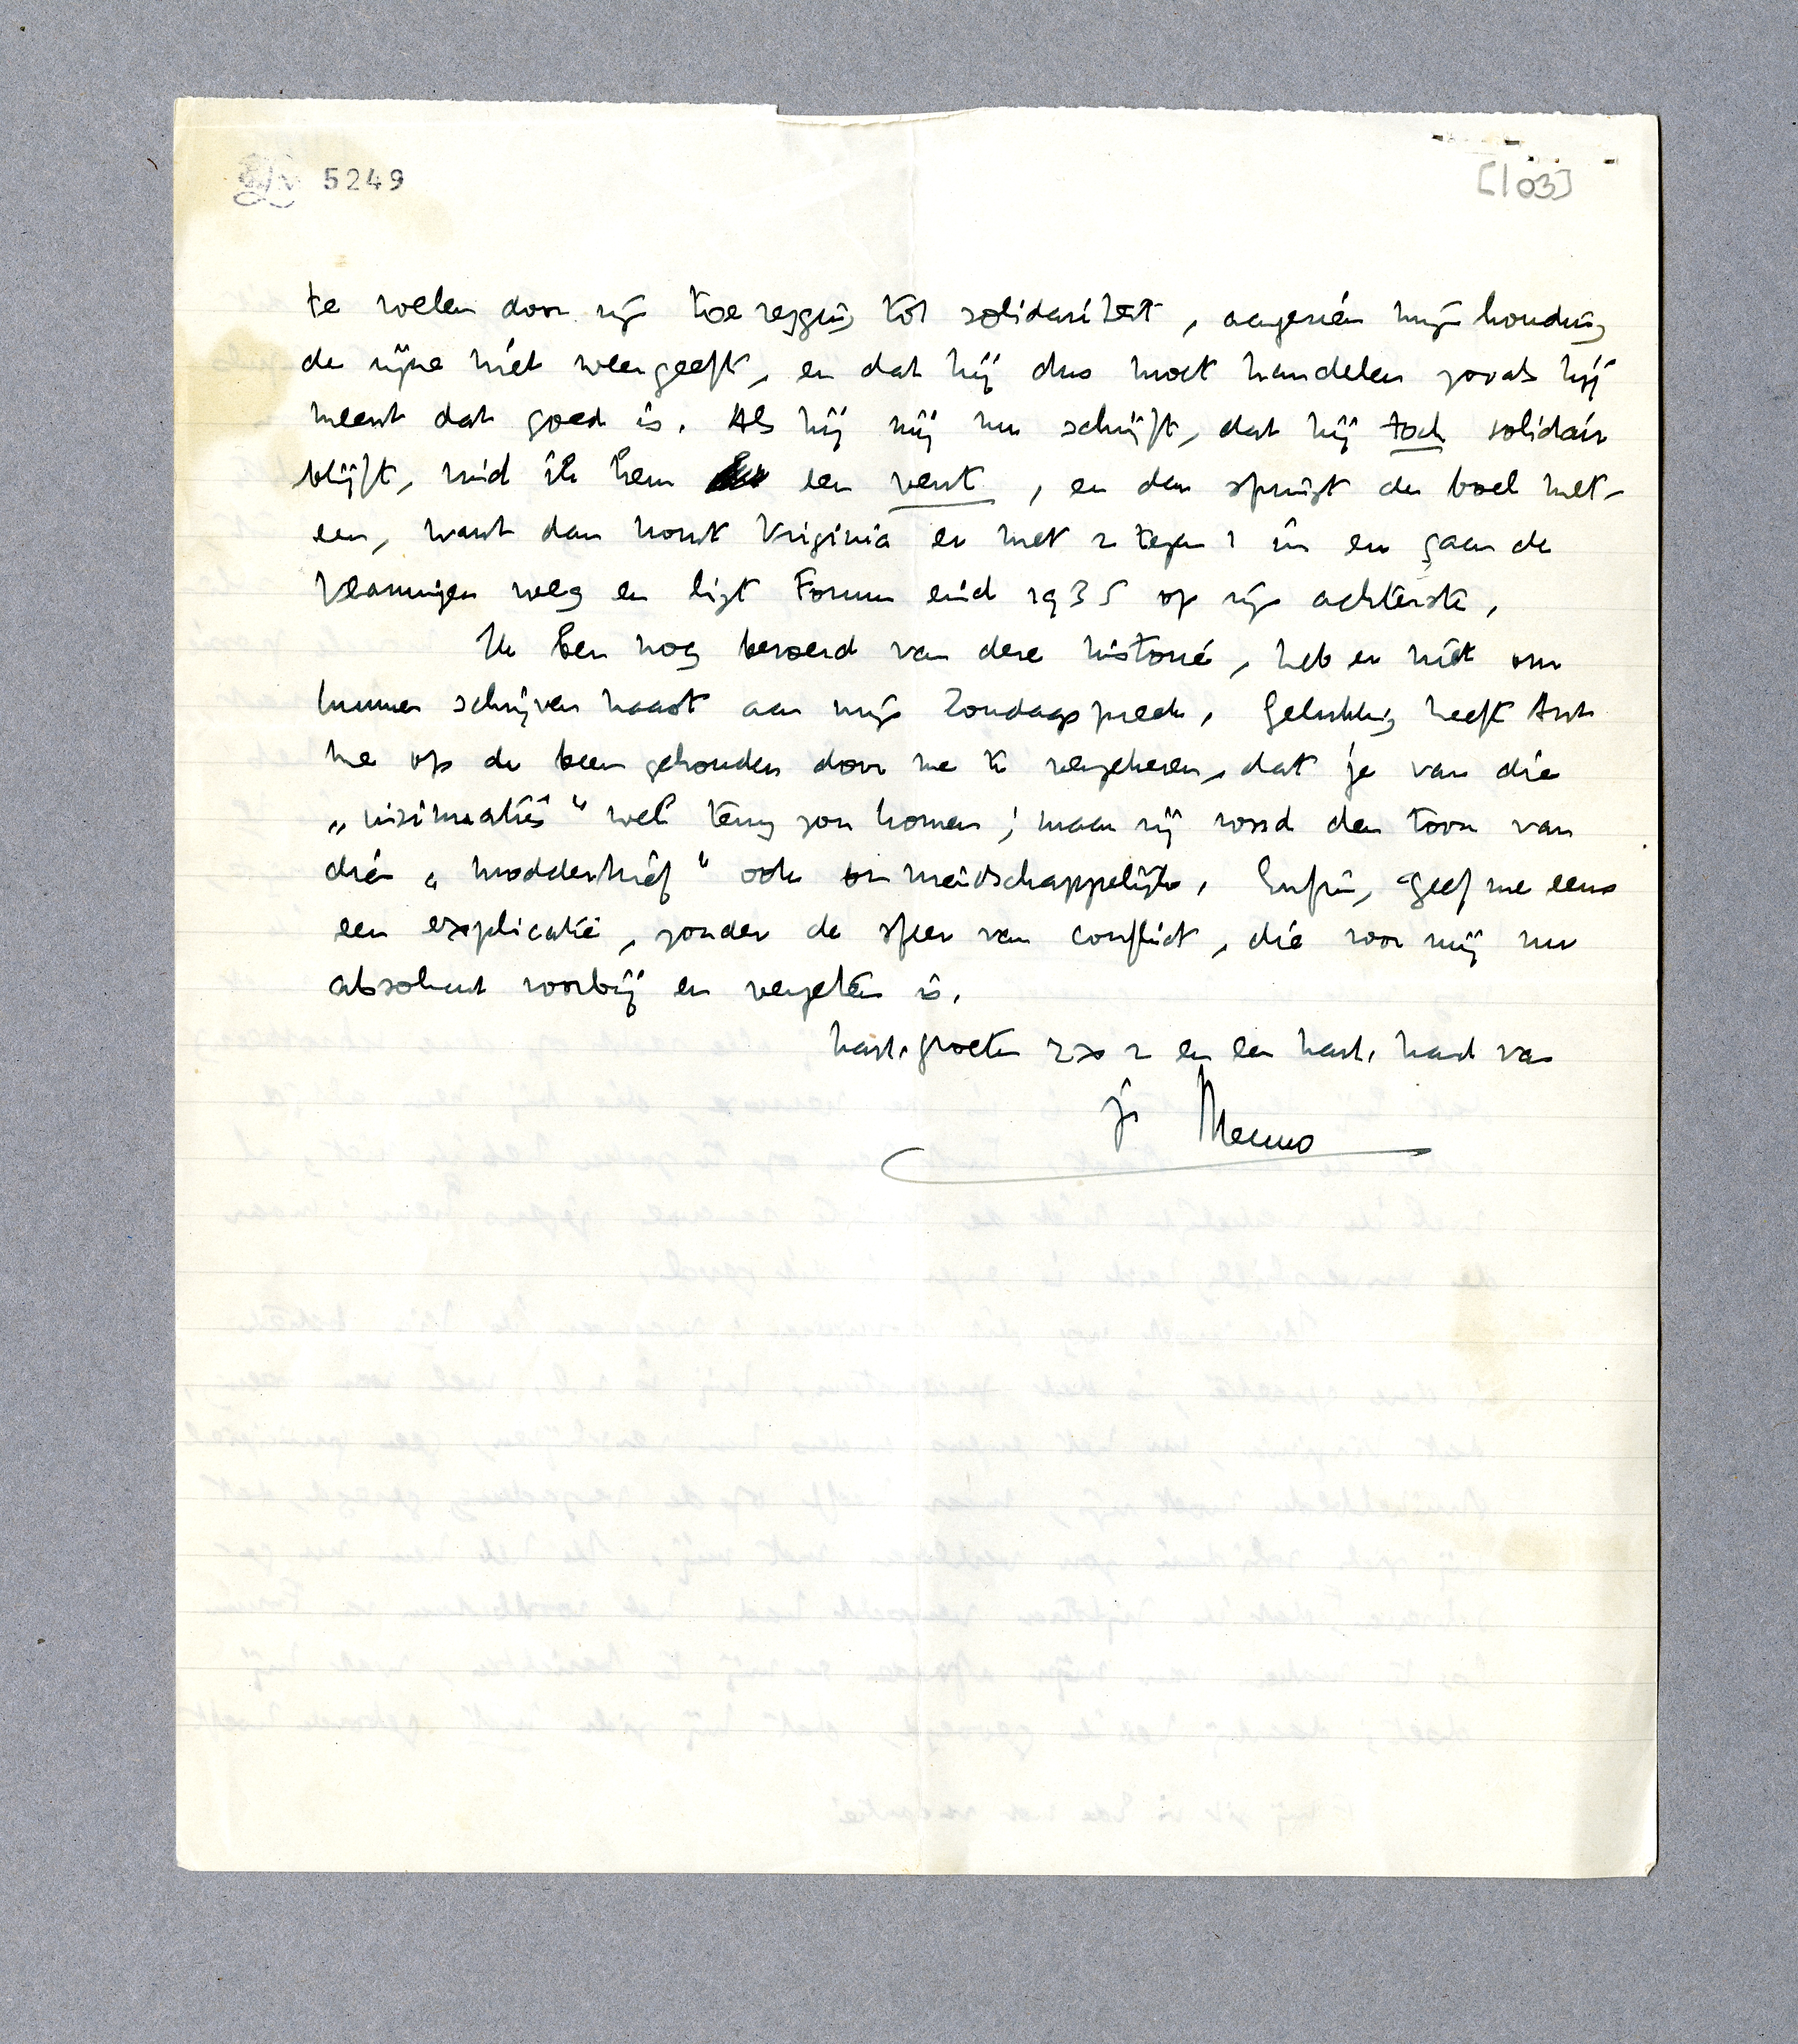 5249
[103]
te voelen door zijn toezegging tot solidariteit, aangezien mijn houding
de zijne niet weergeeft, en dat hij dus moet handelen zooals hij
meent dat goed is. Als hij mij nu schrijft, dat hij toch solidair
blijft, vind ik hem een vent, en dan springt de boel met-
een, want dan komt Virginia er met 2 tegen 1 in en gaan de
Vlamingen weg en ligt Forum eind 1935 op zijn achterste.
Ik ben nog beroerd van deze historie, heb er niet om
kunnen schrijven haast aan mijn Zondagspreek. Gelukkig heeft Ant
me op de been gehouden door me te verzekeren, dat je van die
„insinuaties" wel terug zou komen; maar zij vond den toon van
dien „modderbrief" ook onvriendschappelijk. Enfin, geef me eens
een explicatie, zonder de sfeer van conflict, die voor mij nu
absoluut voorbij en vergeten is.
hart. groeten 2 x 2 en een hart. hand van
je Menno